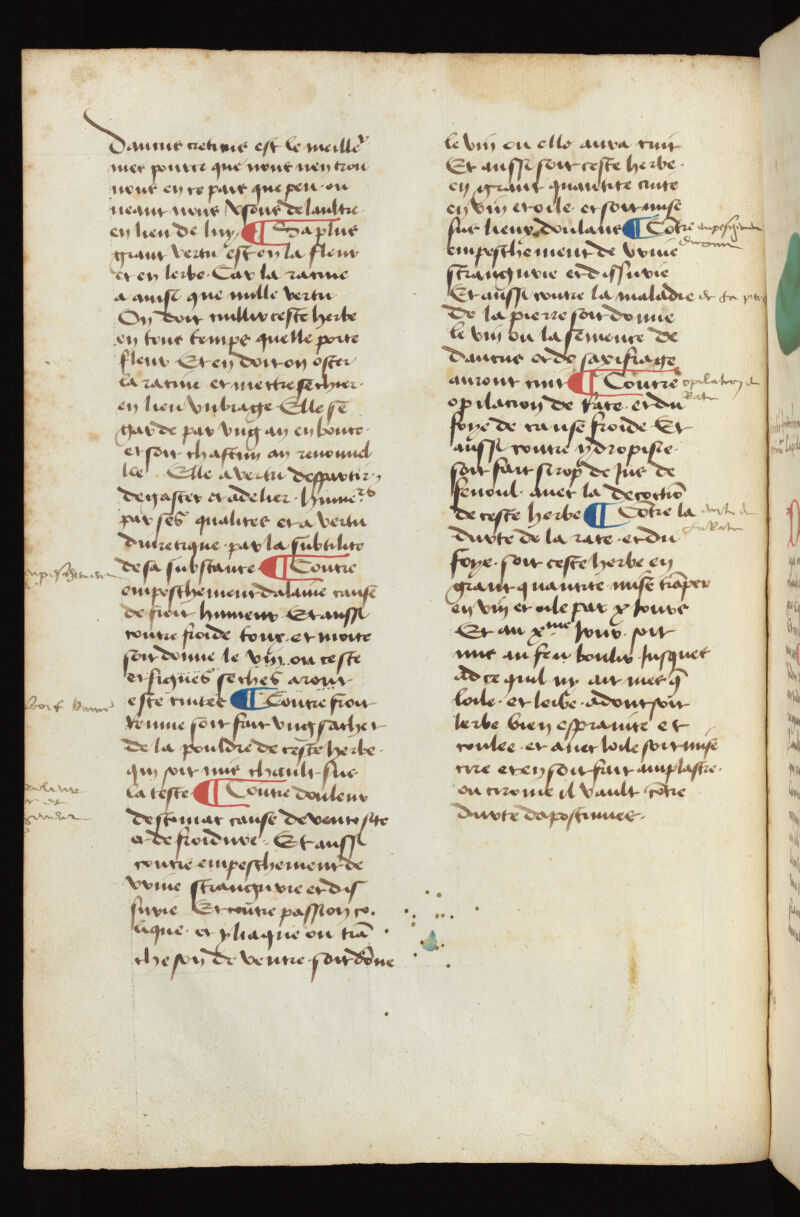 Daucus creticus est le meille͛
mes pource que nous nen trou
uons en ce pais que peu ou
neant nous vsons de laultre
en lieu de luy ¶ Sa plus
grant vertu est en la fleur
et en lerbe. Car la racine
a ainsi que nulle vertu
On doit cuillir ceste herbe
en tous temps quelle porte
fleur Et en doit on oster
la racine et mettre secher
en lieu vmbrage Elle se
garde par vng an en bonte
et soit chascun an renouuel
lee. Elle a vertu despartir
degaster et a deslier humeʳˢ
par ses qualites et a vertu
diuretique par la subtilite
de sa substance ¶ Contre
empeschement dalaine cause
de froit humeur Et aussi
contre froide toux et moite
soit donne le vin ou ceste
et figues seches aront
este cuites ¶ Contre froit
reume soit fait vng sachet
de la pouldre de ceste herbe
qui soit mis chault sus
la teste ¶ Contre douleur
destomac cause de ventosite
et de froidure. Et aussi
contre empeschement de
vrine stranguirie et dis
surie Et contre passion co
lique et yliaque ou tran̄
cheson de ventre soit dōne
le vin ou elle aura cuit
Et aussi soit ceste herbe
en grant quantite cuite
en vin et oile et soit mise
sus lieux doulans ¶ Cōtre
empeschement de vrine
strangurie et dissurie
Et aussi contre la maladie
de la pierre soit donne
le vin ou la semence de
daucus et de saxifrage
auront cuit ¶ Contre
opilacion de rate et du
foye de cause froide Et
aussi contre ydropisie
soit fait sirop de ius de
fenoul auec la decoctiō
de ceste herbe ¶ Cōtre la
durte de la rate et du
foye soit ceste herbe en
grant quantite mise trāper
en vin et oile par x iours
Et au xᵐᵉ iour soit
mis au feu boulir iusques
ad ce quil ny ait mes q̄
loile et lerbe adont soit
lerbe bien esprainte et
coulee et auec loile soit mise
cire et en soit fait amplastre
ou cirome il vault cōtre
durte dapostumes.